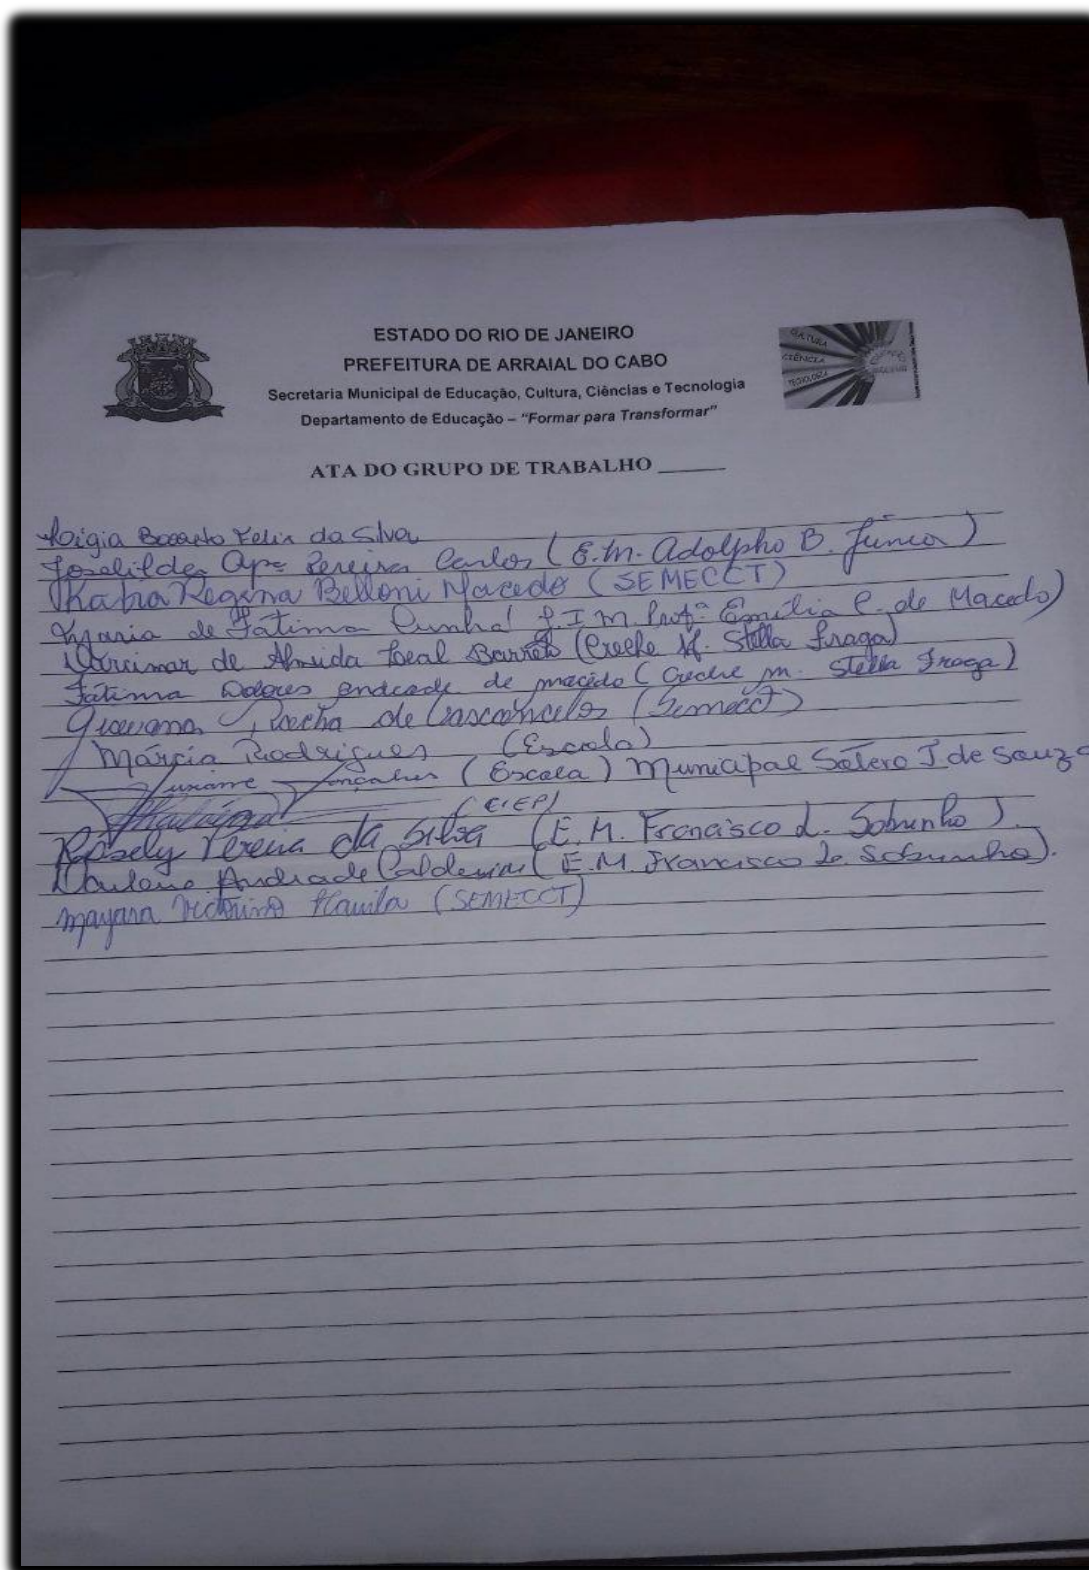 ESTADO DO RIO DE JANEIRO
PREFEITURA DE ARRAIAL DO CABO
Secretaria Municipal de Educação, Cultura, Ciências e Tecnologia
Departamento de Educação – "Formar para Transformar"
CULTURA
CIÊNCIA
TECNOLOGIA
ATA DO GRUPO DE TRABALHO ______
Lígia Felix da Silva
Joselilda Apª Pereira Carlos (E.M. Adolpho B. Júnior)
Katia Regina Belloni Macedo (SEMECCT)
Maria de Fátima Cunha J.I.M. Profª Emília C. de Macedo)
de Almeida Leal Barreto (Creche M. Stella Fraga)
Fátima Dolores andrade de macedo (creche m. Stella Fraga)
Giovana Rocha de Vasconcelos (Semecct)
Márcia Rodrigues (Escola)
Gonçalves (Escola) Municipal Sotero T. de Souza
(CIEP)
Rosely Pereira da Silva (E.M. Francisco L. Sobrinho).
Andrade (E.M. Francisco L. Sobrinho).
Mayara (SEMECCT)